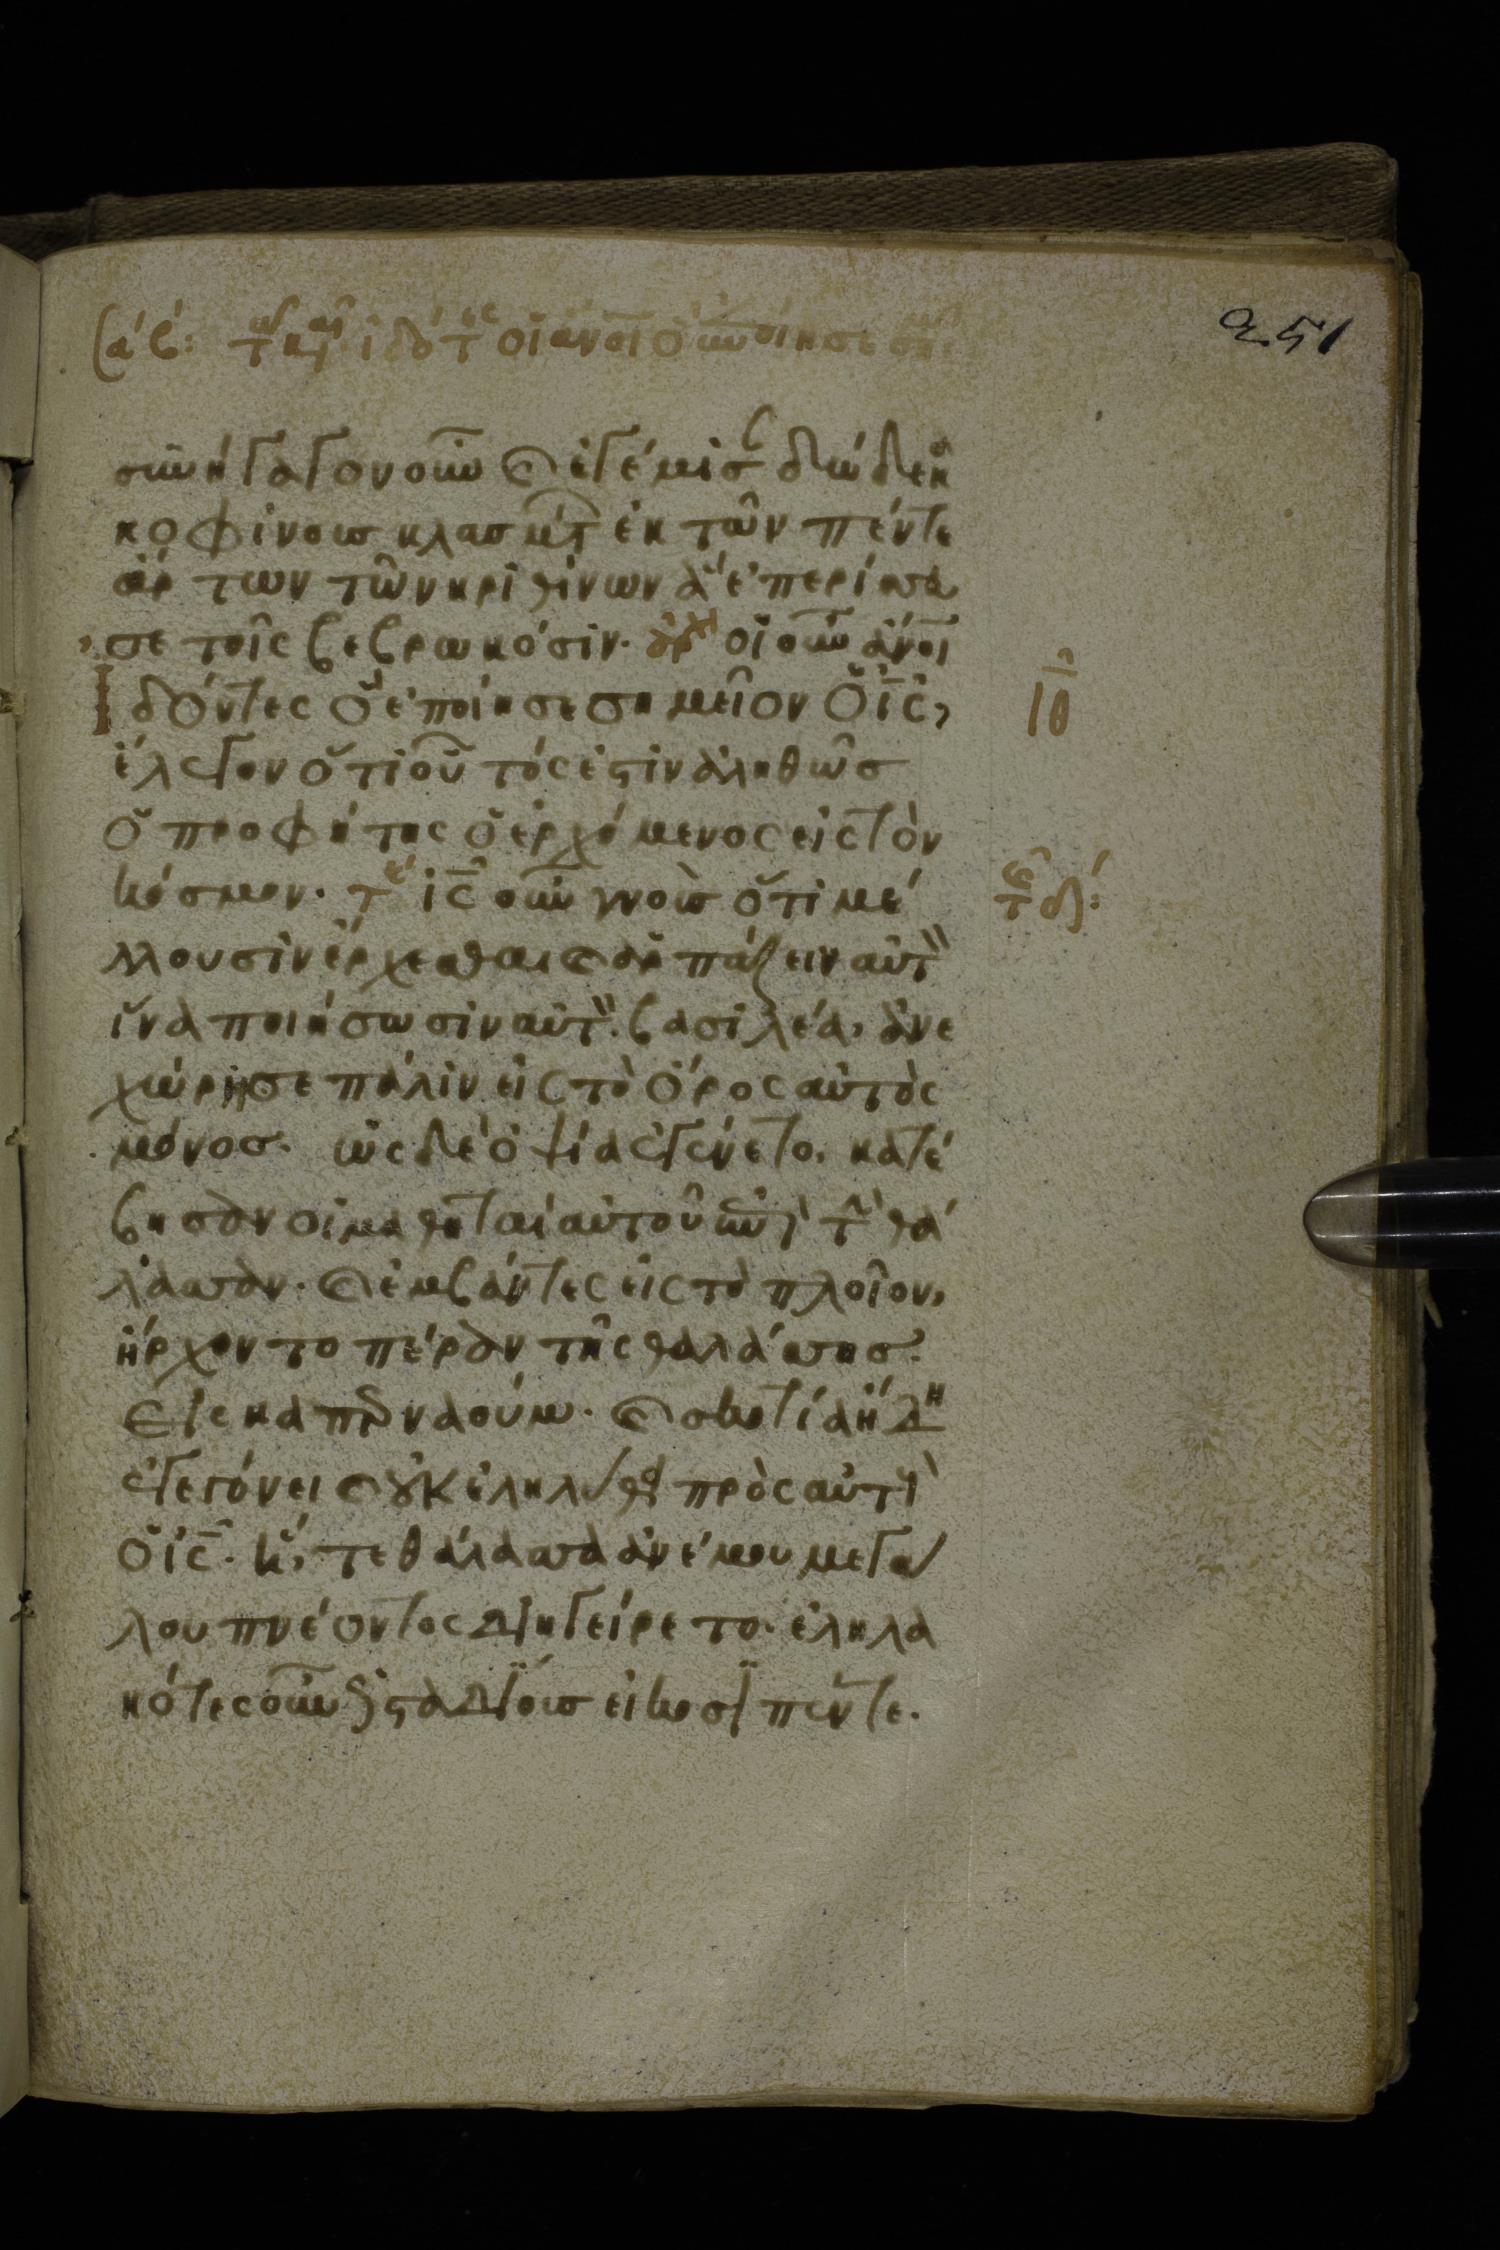 251
σαβ: τ κ ιδοτες οι ανοι ο εποιησε ση
συνήγαγον οὖν καὶ ἐγέμισ δώδεκα
κοφίνους κλασμάτ ἐκ τῶν πέντε
ἄρτων τῶν κριθίνων ἃ ἐπερίσσευ
σε τοῖς βεβρωκόσιν. ἀρχ οἱ οὖν ἄνοι
ἰδόντες ὃ ἐποίησε σημεῖον ὁ ἰς,
ἔλεγον ὅτι οὗτός ἐστιν ἀληθῶς
ὁ προφήτης ὁ ἐρχόμενος εἰς τὸν
κόσμον. τε ἰς οὖν γνοὺς ὅτι μέ
λλουσιν ἔρχεσθαι καὶ ἁρπάζειν αὐτὸν
ἵνα ποιήσωσιν αὐτὸν βασιλέα, ἀνε
χώρησε πάλιν εἰς τὸ ὄρος αὐτὸς
μόνος. ὡς δὲ ὀψία ἐγένετο, κατέ
βησαν οἱ μαθηταὶ αὐτοῦ ἐπὶ τὴν θά
λασσαν. καὶ ἐμβάντες εἰς τὸ πλοῖον,
ἤρχοντο πέραν τῆς θαλάσσης
εἰς καπερναούμ. καὶ σκοτία ἤδη
ἐγεγόνει καὶ οὐκ ἐληλύθει πρὸς αὐτοὺς
ὁ ἰς. ἥ, τε θάλασσα ἀνέμου μεγά
λου πνέοντος διηγείρετο. ἐληλα
κότες οὖν ὡς σταδίους εἰκοσιπέντε.
ιθ
τ δ: